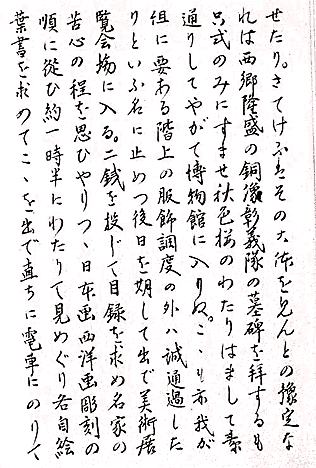 せたり。さてけふはその大体を見んとの豫定な
れは西郷隆盛の銅像彰義隊の墓碑を拝するも
只式のみにすませ秋色桜のわたりはまして素
通りしてやがて博物館に入りぬ。こゝも亦我が
組に要ある階上の服飾調度の外ハ誠通過した
りといふ名に止めつ後日を期して出で美術展
覧会場に入る。二銭を投じて目録を求め名家の
苦心の程を思ひやりつゝ日本画西洋画彫刻の
順に従ひ約一時半にわたりて見めぐり各自絵
葉書を求めてこゝを出で直ちに電車にのりて